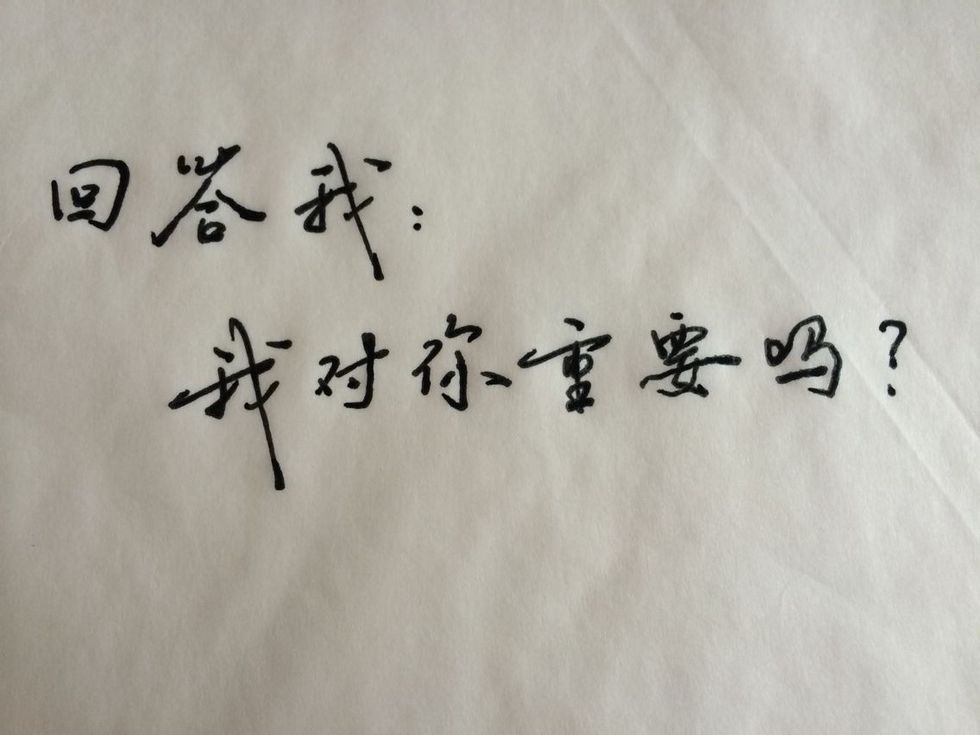 回答我:
我对你重要吗?